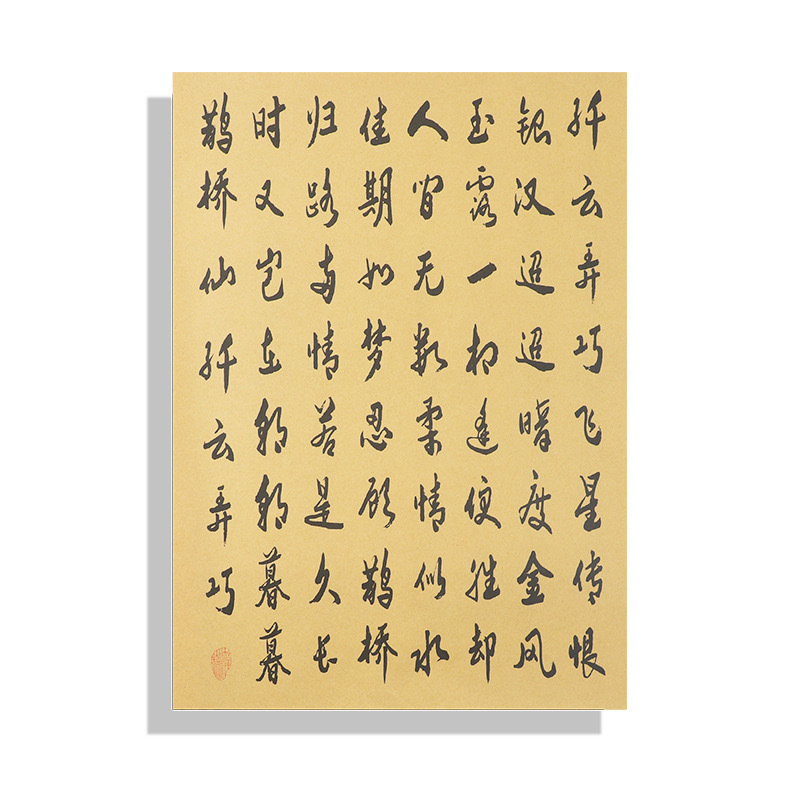 纤云弄巧飞星传恨
银汉迢迢暗度金风
玉露一相逢便胜却
人间无数柔情似水
佳期如梦忍顾鹊桥
归路两情若是久长
时又岂在朝朝暮暮
鹊桥仙纤云弄巧